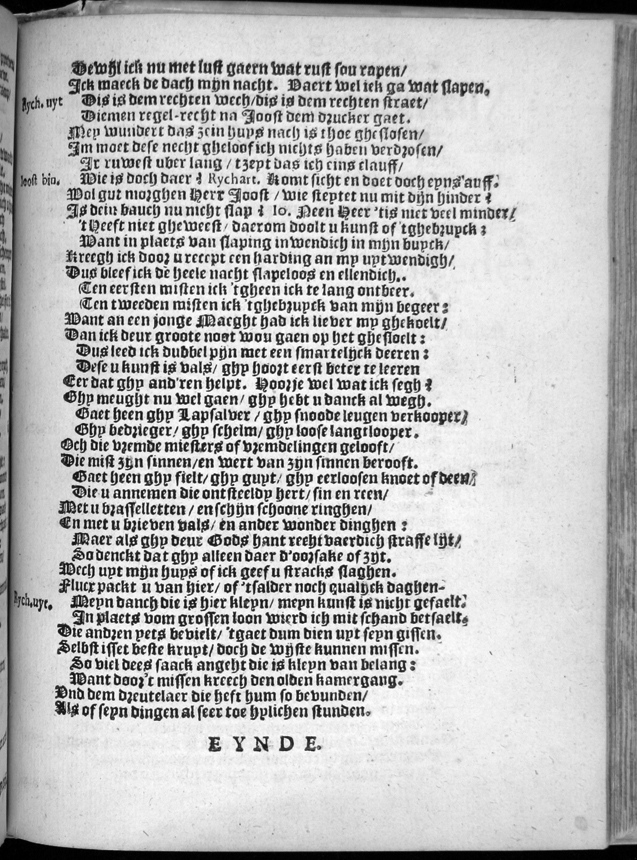 Dewijl ick nu met lust gaern wat rust sou rapen/
Ick maeck de dach mijn nacht. Vaert wel ick ga wat slapen.
Rych. uyt Dis is dem rechten wech/dis is dem rechten straet/
Diemen regel-recht na Joost dem drucker gaet.
Mey wundert das zein huys nach is thoe gheslosen/
Im moet dese necht gheloof ich nichts haben verdrosen/
Ir ruwest uber lang / tzept das ich eins clauff/
Joost bin. Wie is doch daer? Rychart. Komt sicht en doet doch eyns'auff.
Wol gut morghen Herr Joost / wie steptet nu mit dijn hinder?
Is dein bauch nu nicht slap? Io. Neen Heer 'tis niet veel minder/
't Heeft niet gheweest/ daerom doolt u kunst of 'tghebruyck:
Want in plaets van slaping inwendich in mijn buyck/
Kreegh ick door u recept een harding an my uytwendigh/
Dus bleef ick de heele nacht slapeloos en ellendich..
Ten eersten misten ick 'tgheen ick te lang ontbeer.
Ten tweeden misten ick 'tghebruyck van mijn begeer:
Want an een jonge Maeght had ick liever my ghekoelt/
Dan ick deur groote noot wou gaen op het ghestoelt:
Dus leed ick dubbel pijn met een smartelijck deeren:
Dese u kunst is vals/ ghy hoort eerst beter te leeren
Eer dat ghy and'ren helpt. Hoorje wel wat ick segh?
Ghy meught nu wel gaen/ ghy hebt u danck al wegh.
Gaet heen ghy Lapsalver / ghy snoode leugen verkooper/
Ghy bedrieger/ ghy schelm/ ghy loose langtlooper.
Och die vremde miesters of vremdelingen gelooft/
Die mist zijn sinnen/en wert van zijn sinnen berooft.
Gaet heen ghy fielt/ ghy guyt/ ghy eerloosen knoet of deen/
Die u annemen die ontsteeldy hert/ sin en reen/
Met u brasselletten / en schijn schoone ringhen/
En met u brieven vals/ en ander wonder dinghen:
Maer als ghy deur Gods hant rechtvaerdich straffe lijt/
So denckt dat ghy alleen daer d'oorsake of zijt.
Wech uyt mijn huys of ick geef u stracks slaghen.
Flucx packt u van hier/ of 'tsalder noch qualijck daghen-
Rych. uyt. Meyn danch die is hier kleyn/ meyn kunst is nicht gefaelt.
In plaets vom grossen loon wierd ich mit schand betsaelt.
Die andren yets bevielt/ 'tgaet dum dien uyt seyn gissen.
Selbst isset beste krupt/ doch de wijste kunnen missen.
So viel dees saack angeht die is kleyn van belang:
Want door't missen kreech den olden kamergang.
Und dem dreutelaer die heft hum so bevunden/
Als of seyn dingen al seer toe hylichen stunden.
EYNDE.